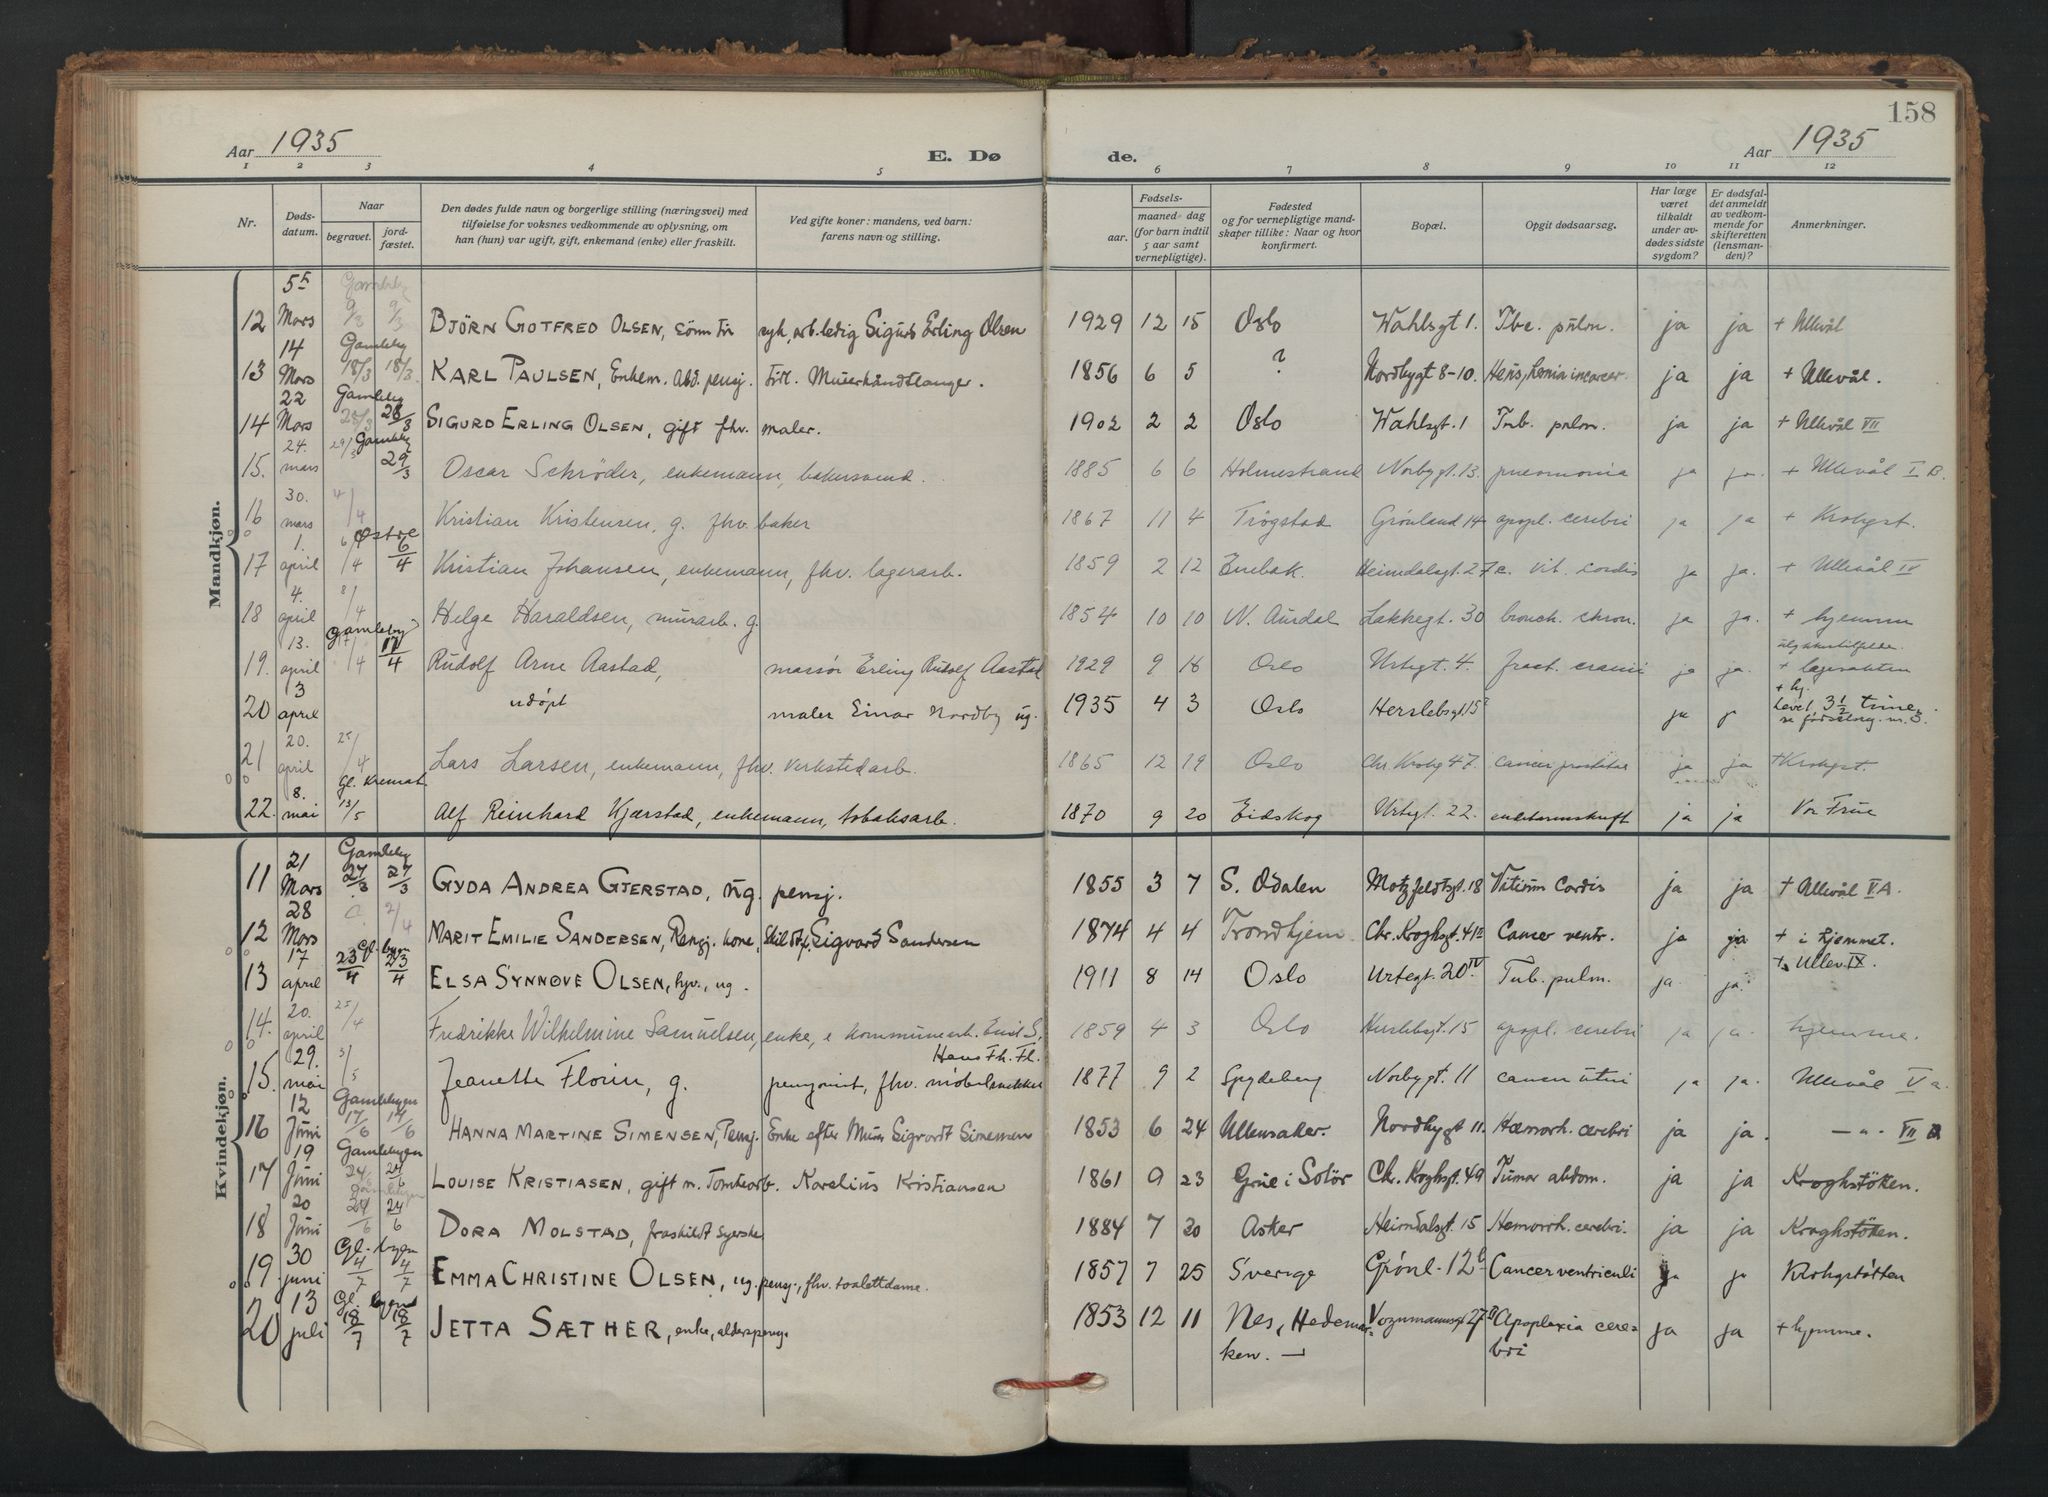 158
Aar 1935
E. Dø
de.
Aar 1935
1 2 3 4 5 6 7 8 9 10 11 12
Nr.
Døds-
datum.
Naar
begravet.
jord-
fæstet.
Den dødes fulde navn og borgerlige stilling (næringsvei) med
tilføielse for voksnes vedkommende av oplysning, om
han (hun) var ugift, gift, enkemand (enke) eller fraskilt.
Ved gifte koner: mandens, ved barn:
farens navn og stilling.
Fødsels-
aar.
maaned og dag
(for barn indtil
5 aar samt
vernepligtige).
Fødested
og for vernepligtige mand-
skaper tillike: Naar og hvor
konfirmert.
Bopæl.
Opgit dødsaarsag.
Har læge
været
tilkaldt
under av-
dødes sidste
sygdom?
Er dødsfal-
det anmeldt
av vedkom-
mende for
skifteretten
(lensman-
den)?
Anmerkninger.
Mandkjøn.
5 Gamleby
12 Mars 9/3 9/3 BJÖRN GOTFRED OLSEN, sönn av syk, arb.ledig Sigurd Erling Olsen 1929 12 15 Oslo Wahlsgt 1. Tbc. pulm. ja ja + Ullevål
14 Gamleby
13 Mars 18/3 18/3 KARL PAULSEN, Enkem. Ald. pensj. tidl. Murerhåndlanger. 1856 6 5 ? Nordbygt 8-10. hernia incarcer. ja ja + Ullevål.
22 Gamleby
14 Mars 28/3 28/3 SIGURD ERLING OLSEN, gift fhv. maler. 1902 2 2 Oslo Wahlsgt. 1 Tub. pulm. ja ja + Ullevål VII
24. 29/3 Gamleby
15. mars 29/3 Oscar Schrøder, enkemann, bakersvend. 1885 6 6 Holmestrand Norbygt. 13. pneumonia ja ja. + Ullevål I B.
30. 4/
16 mars /4 Kristian Kristensen, g. fhv. baker 1867 11 4 Trøgstad Grønland 14 apopl. cerebri ja ja + Krohgst.
1. 6/ Østre
17 april /4 6/4 Kristian Johansen, enkemann, fhv. lagerarb. 1859 2 12 Enebak. Heimdalsgt. 27c. vit. cordis ja ja. + Ullevål IV
4. 8/
18 april /4 Helge Haraldsen, murarb. g. 1854 10 10 N. Aurdal Lakkegt. 30 bronch. chron. ja ja. + hjemme
13. Gamleby ulykkestilfelle.
19. april 17/4 17/4 Rudolf Arne Aastad, massør Erling Rudolf Aastad 1929 9 18 Oslo Urtegt. 4. fract. cranii ja ja. + lægevakten
3 + hj.
20 april udøpt maler Einar Nordby ug. 1935 4 3 Oslo Herslebsgt. 15 ja Levet 3 1/2 time.
se fødselreg. nr. 3.
20. 25/
21 april /4 Lars Larsen, enkemann, fhv. verkstedarb. 1865 12 19 Oslo Chr. Krohg 47. cancer prostatae ja ja + Krohgst.
8. Gl. Kremat.
22. mai 13/5 Alf Reinhard Kjærstad, enkemann, tobaksarb. 1870 9 20 Eidskog Urtegt. 22. ja ja Vor Frue
Kvindekjøn.
21 Gamleby
11 Mars 27/3 27/3 GYDA ANDREA GJERSTAD, ug. pensj. 1855 3 7 S. Odalen Motzfeldtsgt. 18 Vitium Cordis ja ja + Ullevål V A.
28 2/
12 Mars /4 MARIT EMILIE SANDERSEN, Rengj. kone, Skildt f. Sigvard Sandersen 1874 4 4 Trondhjem. Chr. Kroghsgt. 41 Cancer ventr. ja ja + i hjemmet.
17 Gl. byen + Ullev. IX.
13 april 23/4 23/4 ELSA SYNNØVE OLSEN, hjv., ug. 1911 8 14 Oslo Urtegt. 20 IV Tub. pulm. ja. ja.
20. 25/
14. april /4 Fredrikke Wilhelmine Samuelsen, enke, e. kommunearb. Emil S. 1859 4 3 Oslo Herslebgt. 15 apopl. cerebri ja ja. hjemme.
29. 3/ Hans Fh. Fl.
15. mai /5 Jeanette Florin, g. pensjonist, fhv. møbelsnekker 1877 9 2 Spydeberg Norbygt. 11 cancer uteri ja ja. Ullevål V a.
12 Gamlebyen
16 Juni 17/6 17/6 HANNA MARTINE SIMENSEN, Pensj. Enke efter Murer Sigvardt Simensen 1853 6 24 Ullensaker. Nordbygt 11. Hæmorh. cerebri ja ja. — " — VII
19 Gamlebyen
17 Juni 24/6 24/6 LOUISE KRISTIASEN, gift m. Tomtearb. Karelius Kristiansen 1861 9 23 Grue i Solör Chr. Kroghsgt. 49 Tumor abdom. ja ja Kroghstötten.
20 Gamlebyen
18 Juni 24/6 24/6 DORA MOLSTAD, fraskildt Syerske 1884 7 20 Asker Heimdalsgt. 15 Hemorrh. cerebri. ja ja Kroghstöten.
30 Gl. byen
19 juni 4/7 4/7 EMMA CHRISTINE OLSEN, ug. pensj., fhv. toalettdame. 1857 7 25 Sverige Grönl. 12 b Cancer ventriculi ja ja Krohgstøtten
13 Gl. byen
20 juli 18/7 18/7 JETTA SÆTHER, enke, alderspensj. 1853 12 11 Nes, Hedemar-
ken. — 27 Apoplexia cere-
bri ja ja + hjemme.